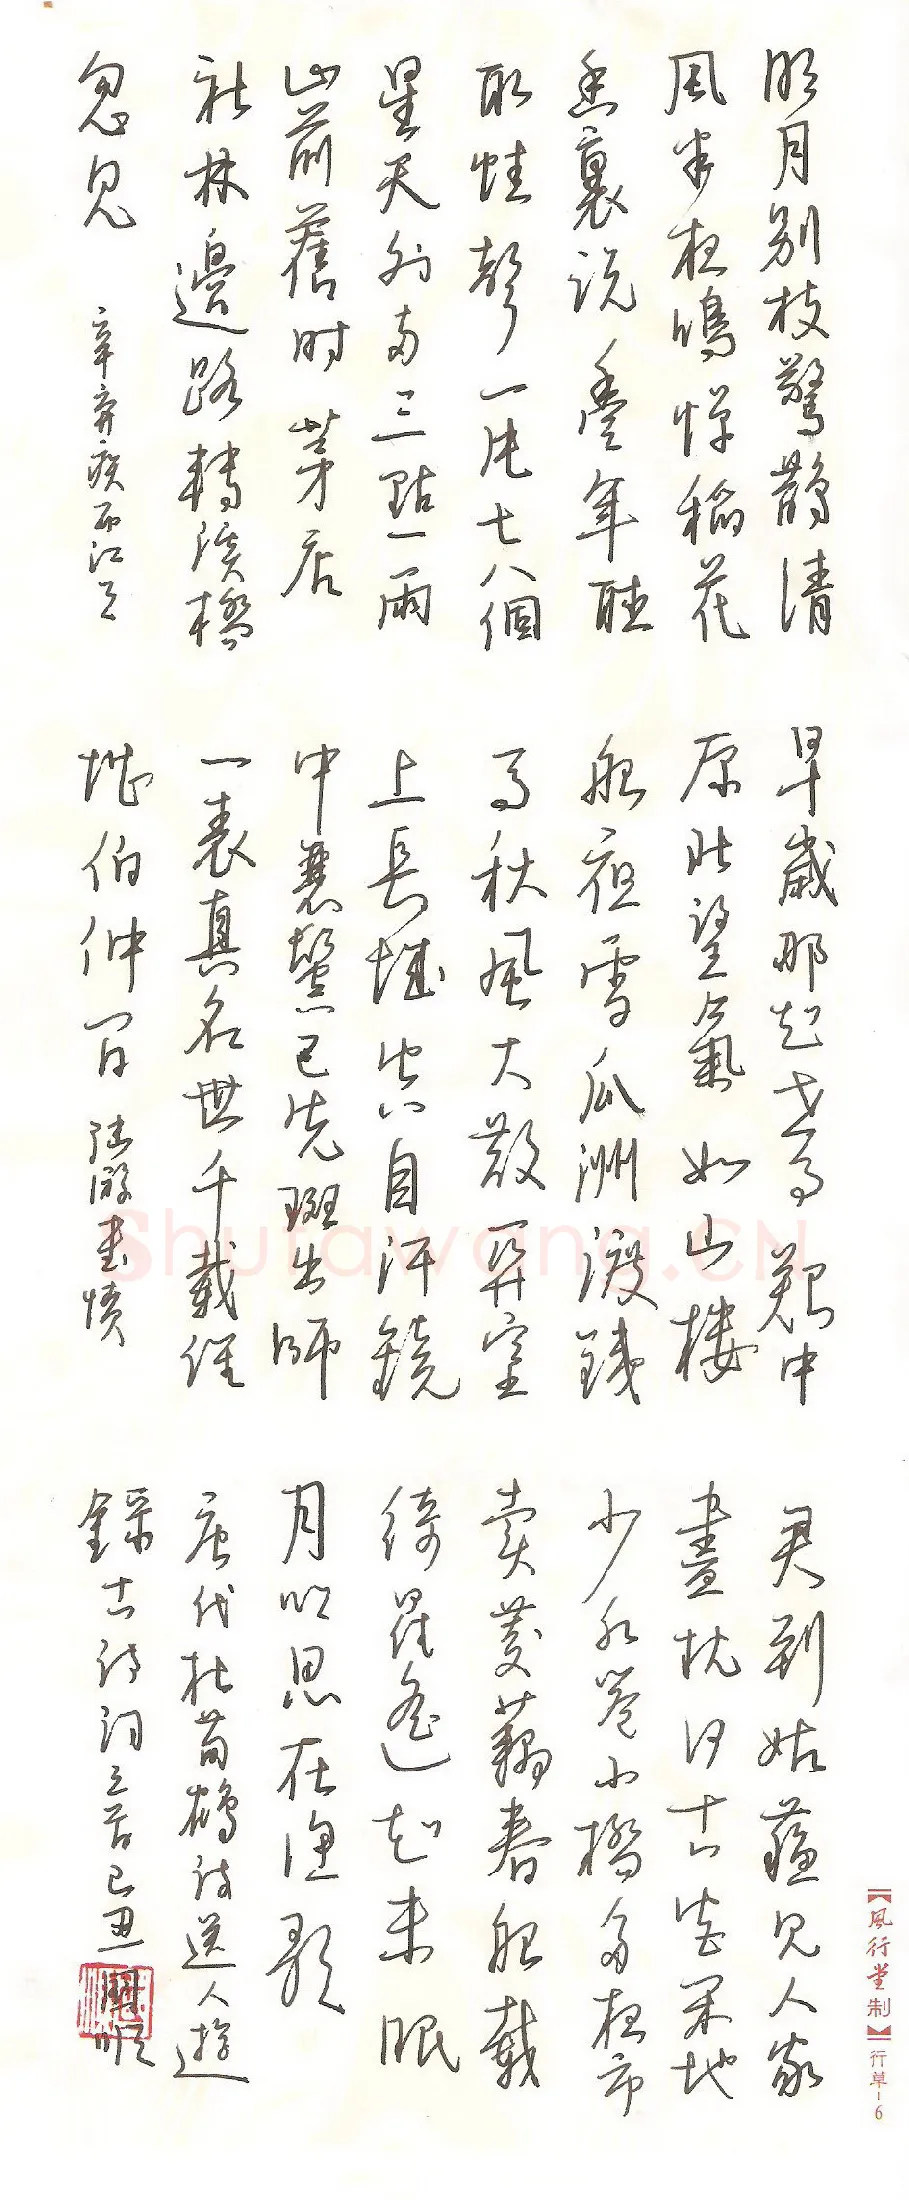 明月别枝驚鵲清
風半夜鳴蟬稻花
香裏说豐年聴
取蛙聲一片七八個
星天外两三點一雨
山前舊时茅店
社林邊路轉溪橋
忽見 辛弃疾西江月
早歲那知世事艱中
原北望氣如山楼
船夜雪瓜洲渡鐵
馬秋風大散関塞
上長城空自許鏡
中衰鬢已先斑出師
一表真名世千載谁
堪伯仲间 陆游書愤
君到姑蘇見人家
盡枕河古宫閑地
少水巷小橋多夜市
賣菱藕春船載
绮羅遥知未眠
月鄉思在漁歌
唐代杜荀鶴诗送人遊
錄古诗詞三首己丑
【風行堂制】行草-6
Shufawang.CN